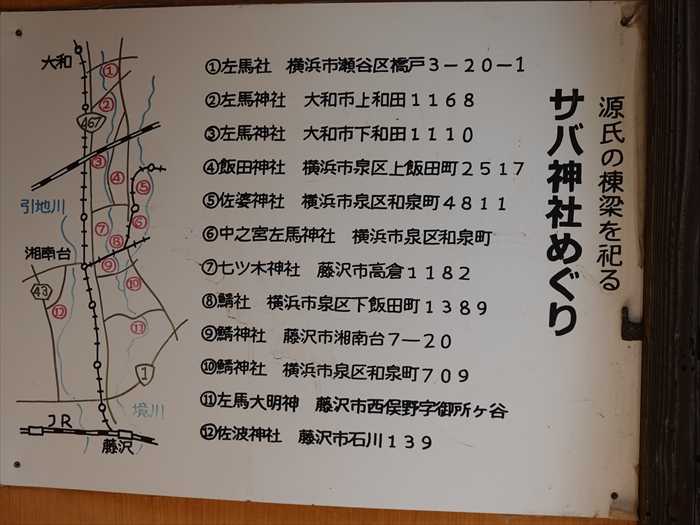 源氏の棟梁を祀る
サバ神社めぐり
①左馬社 横浜市瀬谷区橋戸3-20-1
②左馬神社 大和市上和田1168
③左馬神社 大和市下和田1110
④飯田神社 横浜市泉区上飯田町2517
⑤佐婆神社 横浜市泉区和泉町4811
⑥中之宮左馬神社 横浜市泉区和泉町
⑦七ツ木神社 藤沢市高倉1182
⑧鯖社 横浜市泉区下飯田町1389
⑨鯖神社 藤沢市湘南台7-20
⑩鯖神社 横浜市泉区和泉町709
⑪左馬大明神 藤沢市西俣野字御所ヶ谷
⑫佐波神社 藤沢市石川139
大和
①
②
467
③
④
⑤
引地川
⑥
⑦
⑧
湘南台
⑨
⑩
43
⑫
⑪
1
境川
JR
藤沢